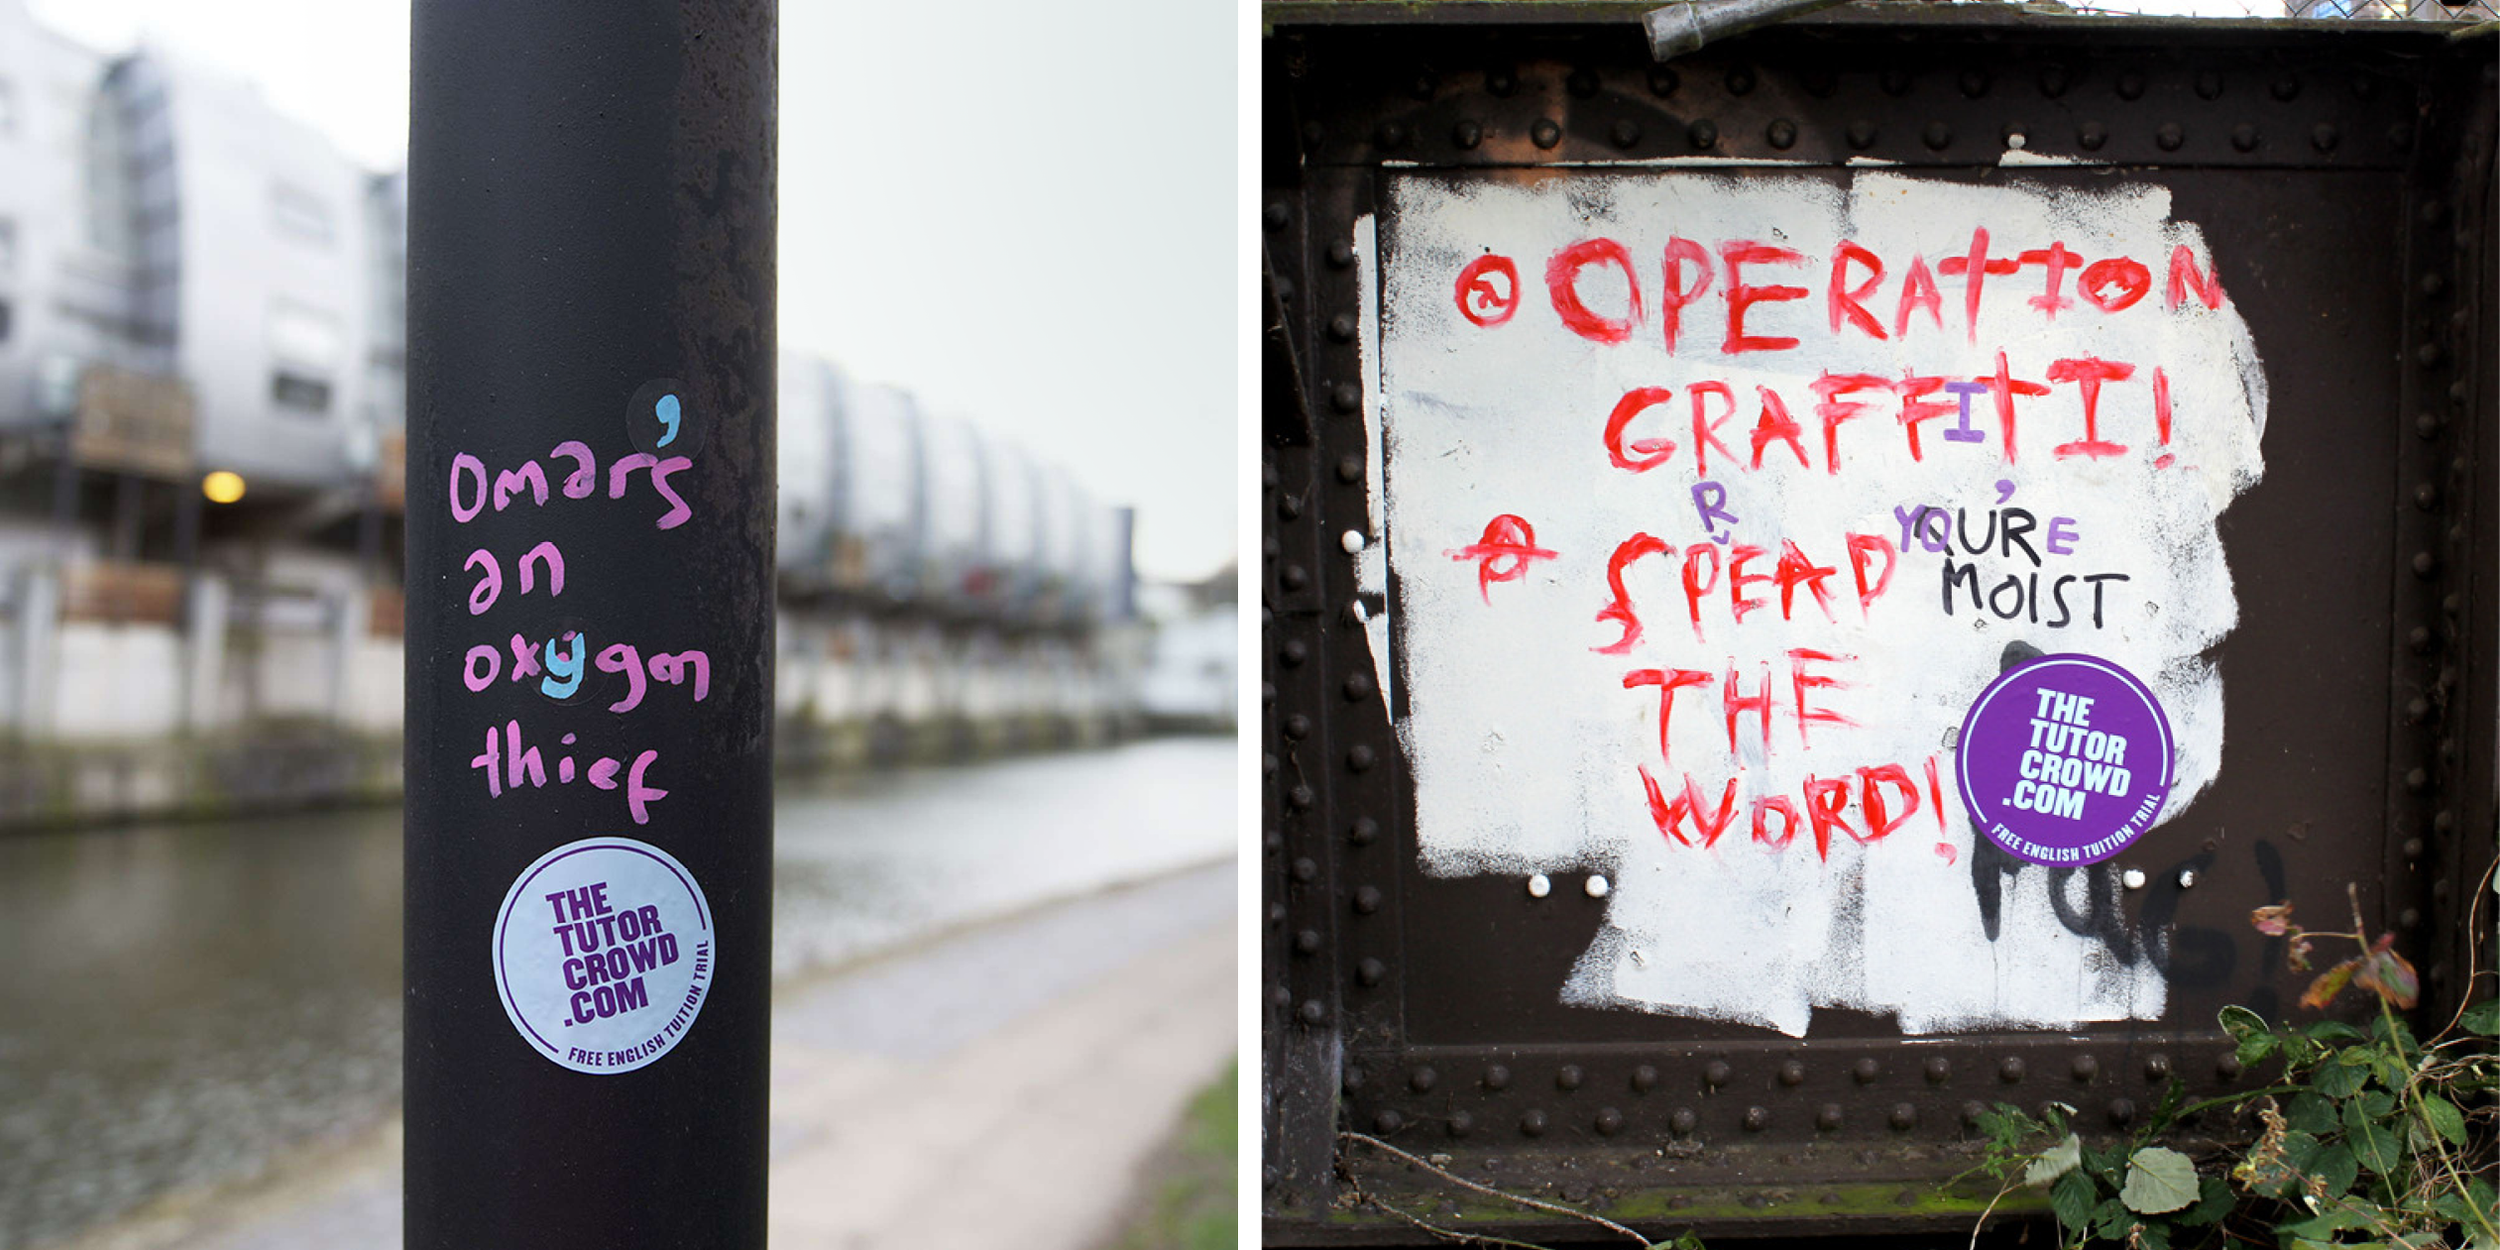 Omar's
an
oxygen
thief
THE
TUTOR
CROWD
.COM
FREE ENGLISH TUITION TRIAL
OPERATION
GRAFFITI!
SPREAD
THE
WORD!
YOU'RE
MOIST
THE
TUTOR
CROWD
.COM
FREE ENGLISH TUITION TRIAL